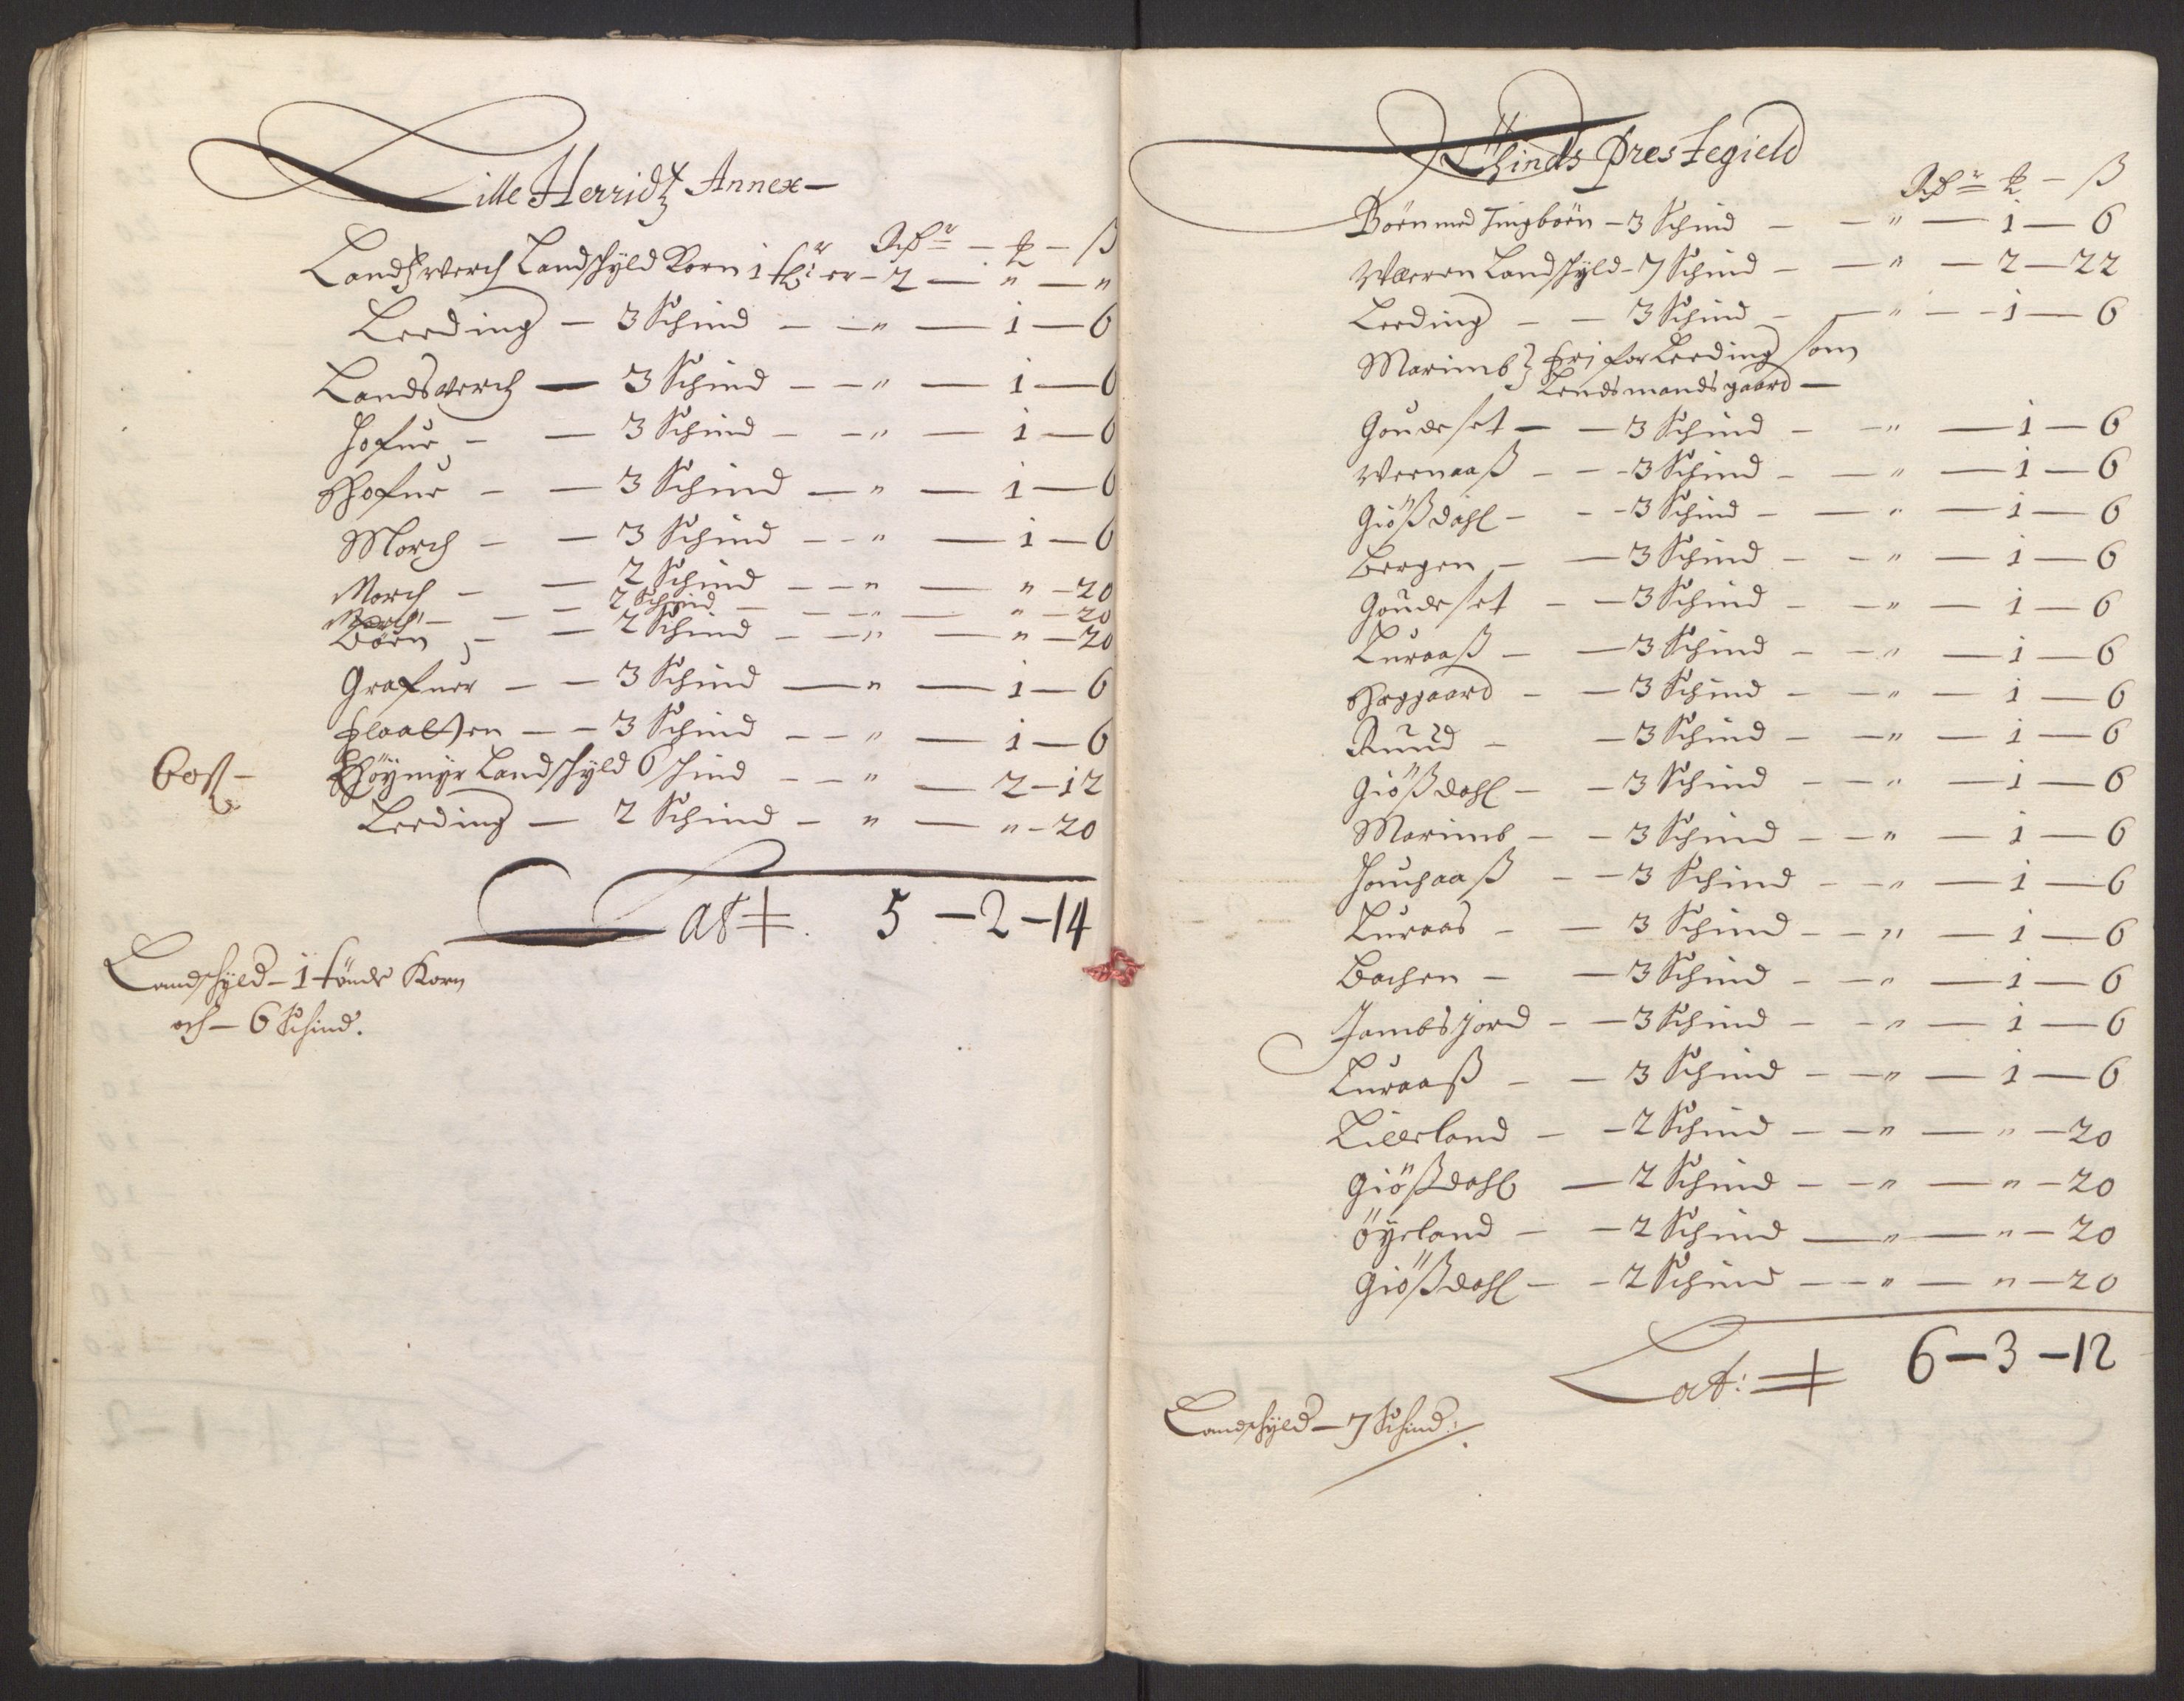 Lille Herridtz Annex —
Rdr — ₰ — ß
Landsverch Landschyld Korn 1 tdr er — 2 — " — "
Leeding — 3 Schind — — " — 1 — 6
Landsverch — 3 Schind — — " — 1 — 6
Hofuer — — 3 Schind — — " — 1 — 6
Hofue — — 3 Schind — " — 1 — 6
Morch — — 3 Schind — — " — 1 — 6
Morch — — 2 Schind — — " — " — 20
Morch — — — 2 Schind — — — " — " — 20
Börn — — 2 Schind — — " — " — 20
Grafuer — — 3 Schind — " — 1 — 6
Flaatten — — 3 Schind — — " — 1 — 6
Höymyr Landschyld 6 schind — — " — 2 — 12
Leeding — 2 Schind — " — " — 20
Lat 5 — 2 — 14
Landschyld — 1 tönde Korn
och — 6 Schind.
Hvinds Prestegield
Rdr — ₰ — ß
Böen med Tingböen — 3 Schind — — " — 1 — 6
Waeren Landschyld — 7 Schind — — " — 2 — 22
Leeding — — 3 Schind — — " — — 1 — 6
Marimb } fri for Leeding som
Lendsmands gaard —
Goudeset — — 3 Schind — — " — 1 — 6
Wernaaß — — 3 Schind — — " — 1 — 6
Giößdahl — — 3 Schind — — " — 1 — 6
Bergen — — 3 Schind — — " — 1 — 6
Goudeset — — 3 Schind — — " — 1 — 6
Luraaß — — 3 Schind — — " — 1 — 6
Heggaard — — 3 Schind — — " — 1 — 6
Ruud — — 3 Schind — — " — 1 — 6
Giößdahl — — 3 Schind — — " — 1 — 6
Marimb — — 3 Schind — — " — 1 — 6
— — 3 Schind — — " — 1 — 6
Luraas — — 3 Schind — — " — 1 — 6
Bachen — — 3 Schind — — " — 1 — 6
Jambsjord — — 3 Schind — — " — 1 — 6
Luraaß — — 3 Schind — — " — 1 — 6
Lilleland — — 2 Schind — — " — " — 20
Giößdahl — 2 Schind — — " — " — 20
öyeland — — 2 Schind — " — " — 20
Giößdahl — — 2 Schind — — " — " — 20
Lat: 6 — 3 — 12
Landschyld — 7 Schind: